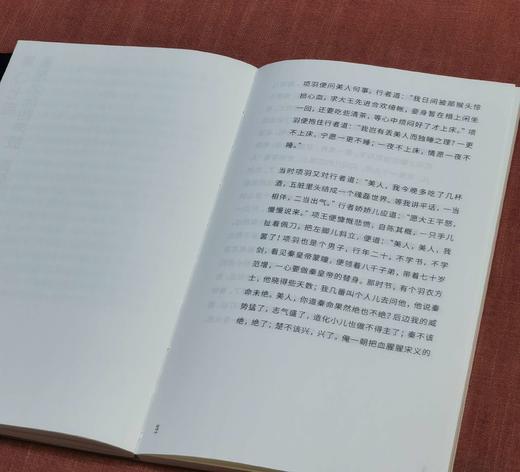 项羽便问美人何事。行者道：“我日间被那猴头惊
损心血，求大王先进合欢绮帐，妾身暂在榻上闲坐
一回，还要吃些清茶，等心中烦闷好了才上床。”项
羽便抱住行者道：“我岂有丢美人而独睡之理？一更
不上床，宁愿一更不睡；一夜不上床，情愿一夜不
睡。”
当时项羽又对行者道：“美人，我今晚多吃了几杯
酒，五脏里头结成一个磈磊世界。等我讲平话，一当
相伴，二当出气。”行者娇娇儿应道：“愿大王平怒，
慢慢说来。”项王便慷慨悲愤，自陈其概，一只手儿
扯着佩刀，把左脚儿斜立，便道：“美人，美人，我
罢了！项羽也是个男子，行年二十，不学书，不学
剑，看见秦皇帝蒙瞳，便领着八千子弟，带着七十岁
范增，一心要做秦皇帝的替身。那时节，有个羽衣方
士，他晓得些天数；我几番叫个人儿去问他，他说秦
命未绝。美人，你道秦命果然绝也不绝？后边我的威
势猛了，志气盛了，造化小儿也做不得主了；秦不该
绝，绝了；楚不该兴，兴了。俺一朝把血腥腥宋义的